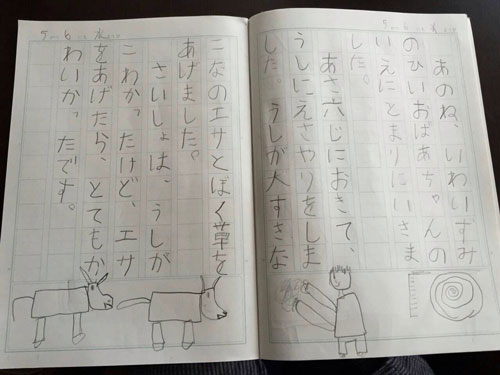 5 6 水
あのね、いわいずみ
のひいおばあちゃんの
いえにとまりにいきま
した。
あさ六じにおきて、
うしにえさやりをしま
した。うしが大すきな
5 6 水
こなのエサとぼく草を
あげました。
さいしょは、うしが
こわかったけど、エサ
をあげたら、とてもか
わいかったです。